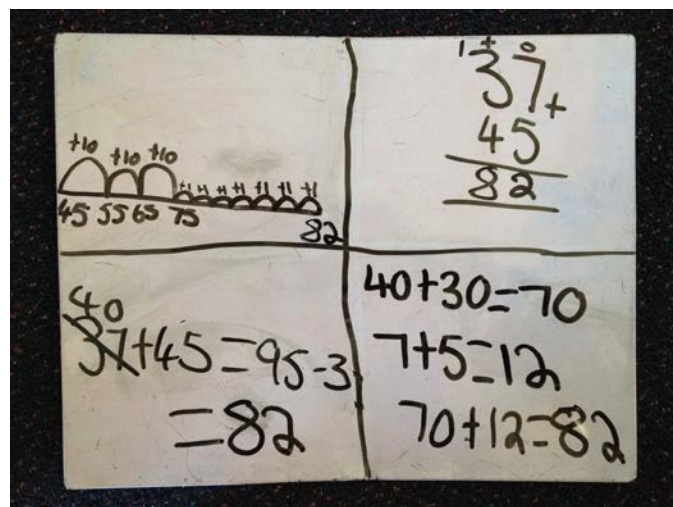 +10 +10 +10 +1 +1 +1 +1 +1 +1 +1
45 55 65 75
82
1 t o
37+
45
82
40
37+45=95-3
=82
40+30=70
7+5=12
70+12=82